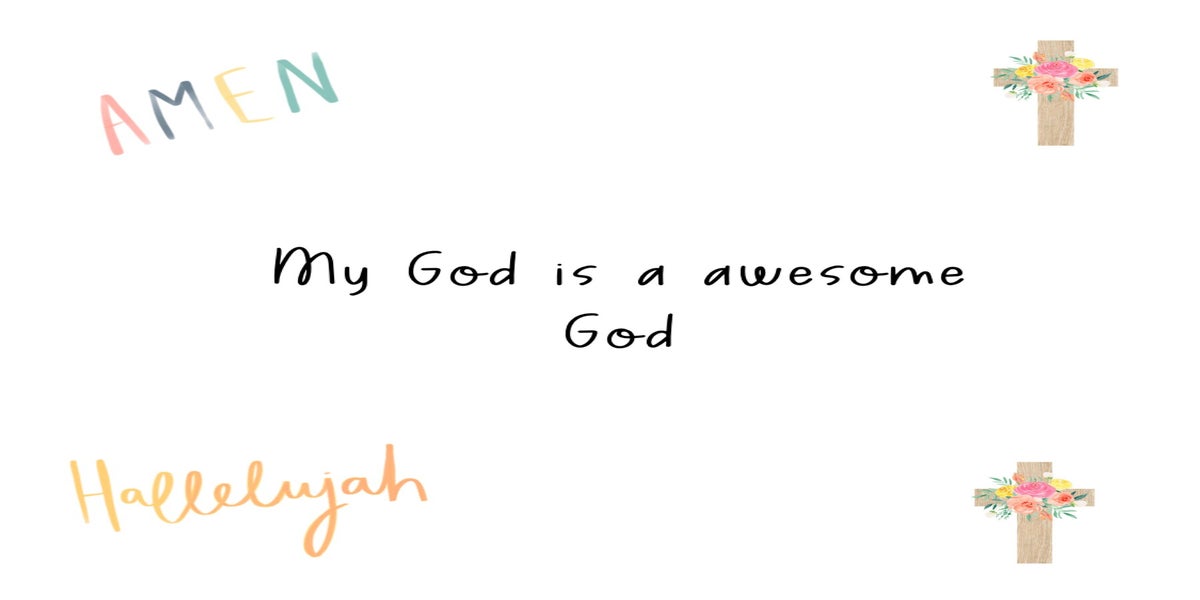 AMEN
My God is a awesome
God
Hallelujah